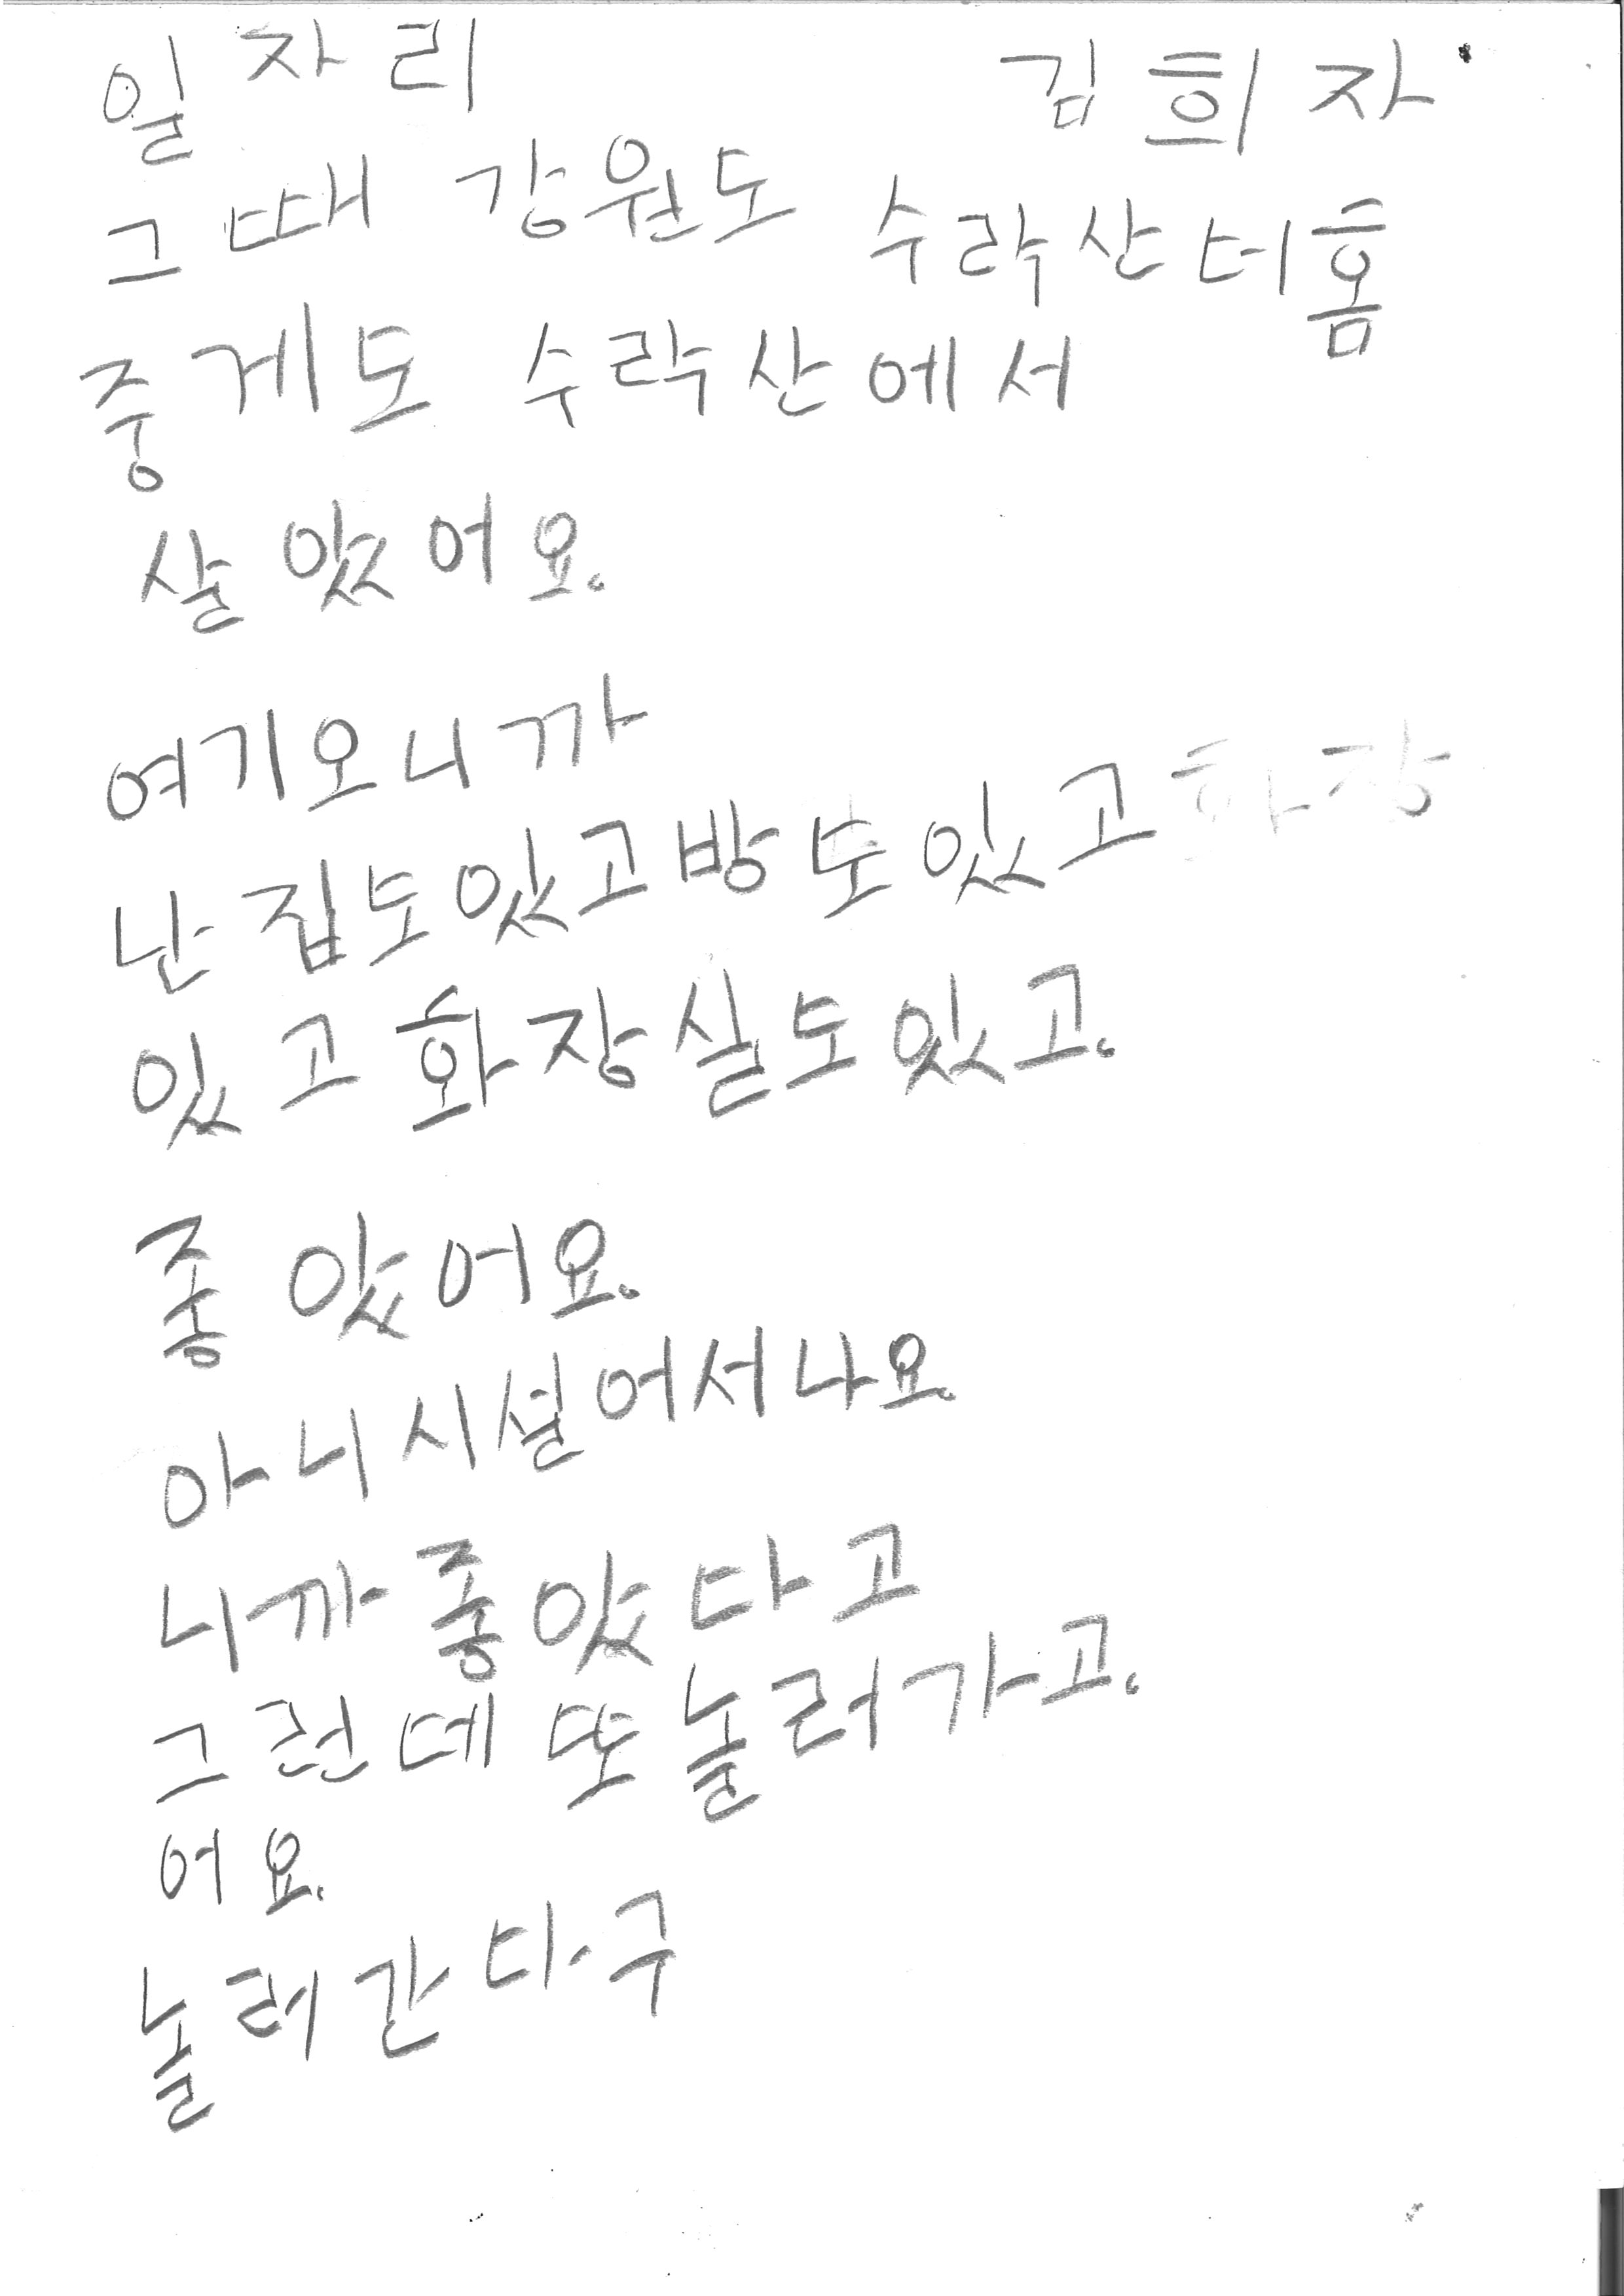 일자리 김희자
그때 강원도 수락산터홈
중게도 수락산에서
살았어요.
여기오니까
난 집도있고방도있고화장
있고화장실도있고.
좋았어요.
아니시설어서나요.
니까좋았다고
그런데또놀러가고.
어요.
놀러간다구